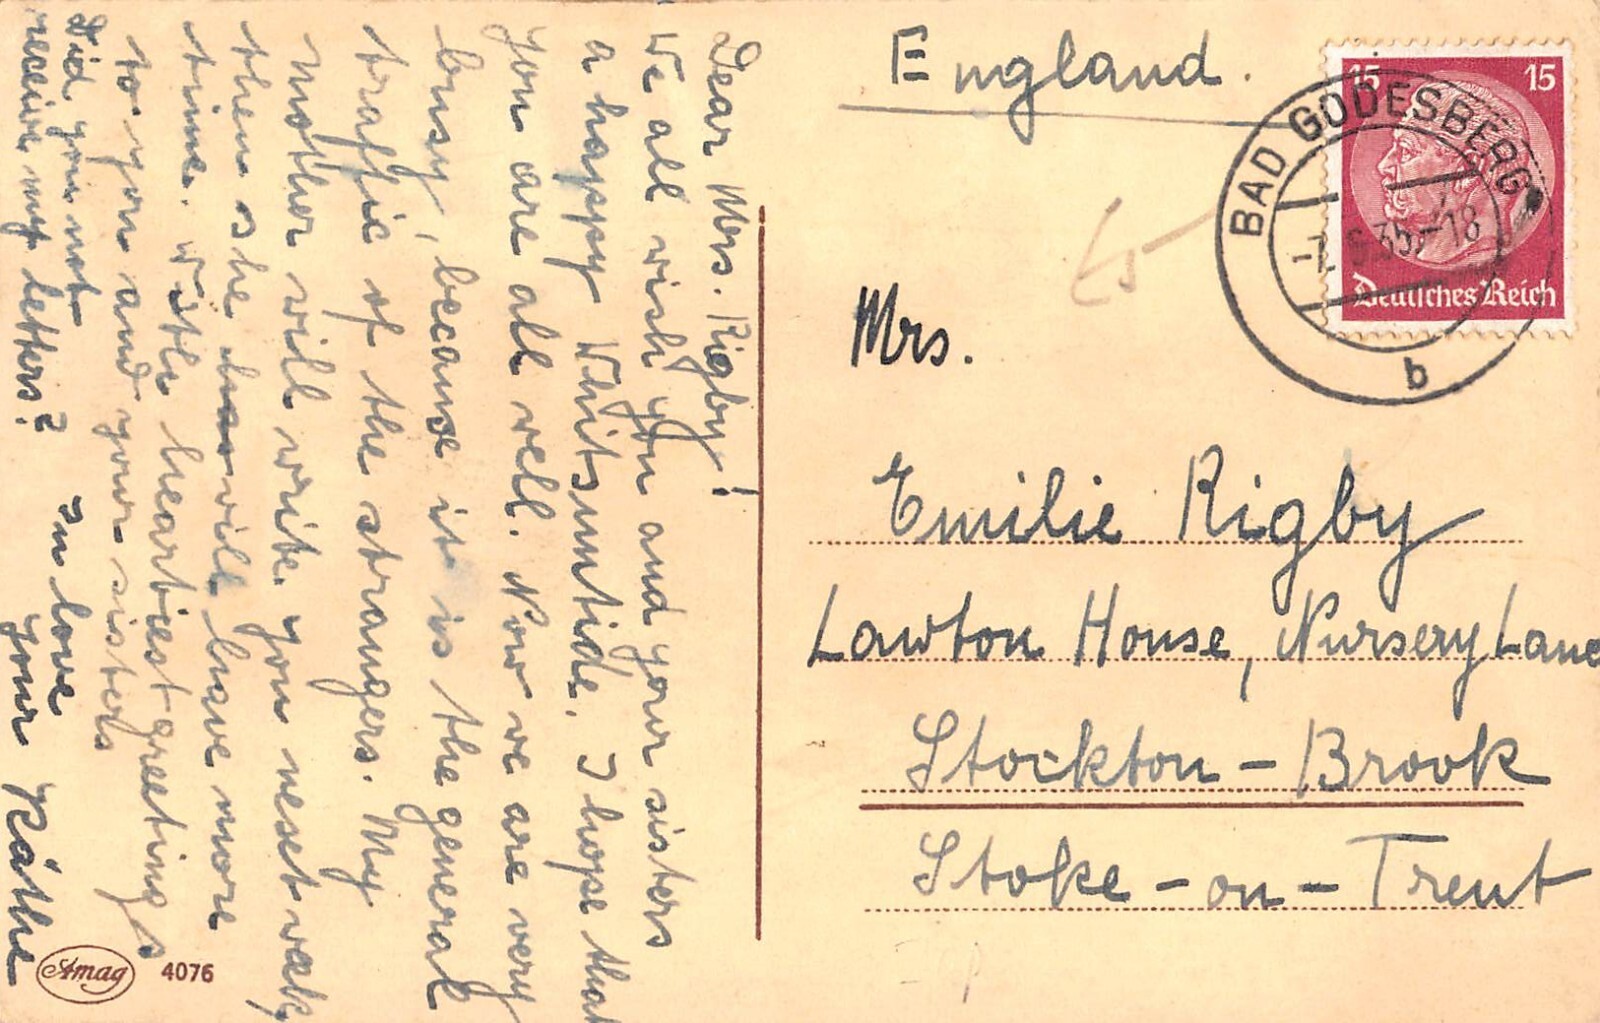 Dear Mrs. Rigby!
We all wish you and your sisters
a happy Whitsuntide. I hope that
you are all well. Now we are very
busy, because it is the general
traffic of the strangers. My
mother will write you next week,
then she has will have more
time. With heartiest greetings
to you and your sisters
In love
your Käthe
Did you not
receive my letters?
England.
15 15
BAD GODESBERG
35.-18
b
Deutsches Reich
Mrs.
Emilie Rigby
Lawton House, Nursery Lane
Stockton-Brook
Stoke-on-Trent
Amag 4076